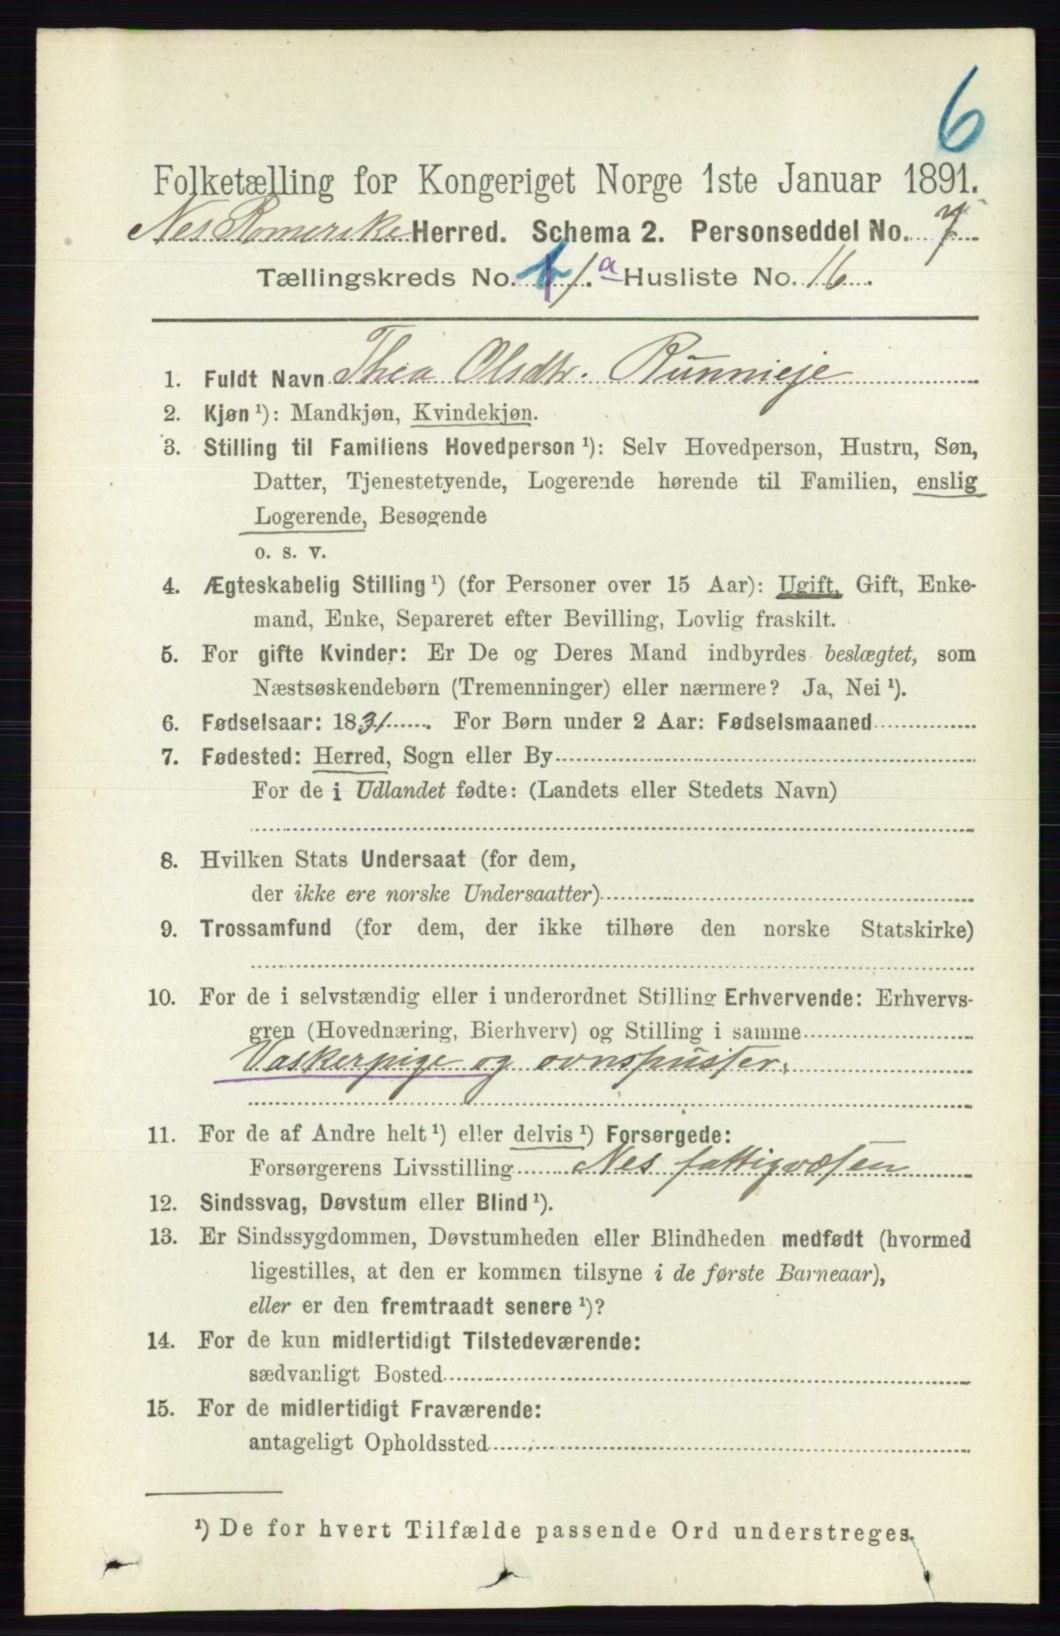 6
Folketælling for Kongeriget Norge 1ste Januar 1891.
Nes Romerike Herred. Schema 2. Personseddel No. 7
Tællingskreds No. 1 a Husliste No. 16.
1. Fuldt Navn Thea Olsdtr.
2. Kjøn ¹): Mandkjøn, Kvindekjøn.
3. Stilling til Familiens Hovedperson ¹): Selv Hovedperson, Hustru, Søn,
Datter, Tjenestetyende, Logerende hørende til Familien, enslig
Logerende, Besøgende
o. s. v.
4. Ægteskabelig Stilling ¹) (for Personer over 15 Aar): Ugift, Gift, Enke-
mand, Enke, Separeret efter Bevilling, Lovlig fraskilt.
5. For gifte Kvinder: Er De og Deres Mand indbyrdes beslægtet, som
Næstsøskendebørn (Tremenninger) eller nærmere? Ja, Nei ¹).
6. Fødselsaar: 1831. For Børn under 2 Aar: Fødselsmaaned
7. Fødested: Herred, Sogn eller By
For de i Udlandet fødte: (Landets eller Stedets Navn)
8. Hvilken Stats Undersaat (for dem,
der ikke ere norske Undersaatter)
9. Trossamfund (for dem, der ikke tilhøre den norske Statskirke)
10. For de i selvstændig eller i underordnet Stilling Erhvervende: Erhvervs-
gren (Hovednæring, Bierhverv) og Stilling i samme
Vaskerpige og ovnspusser.
11. For de af Andre helt ¹) eller delvis ¹) Forsørgede:
Forsørgerens Livsstilling Nes fattigvæsen
12. Sindssvag, Døvstum eller Blind ¹).
13. Er Sindssygdommen, Døvstumheden eller Blindheden medfødt (hvormed
ligestilles, at den er kommen tilsyne i de første Barneaar),
eller er den fremtraadt senere ¹)?
14. For de kun midlertidigt Tilstedeværende:
sædvanligt Bosted
15. For de midlertidigt Fraværende:
antageligt Opholdssted
¹) De for hvert Tilfælde passende Ord understreges.